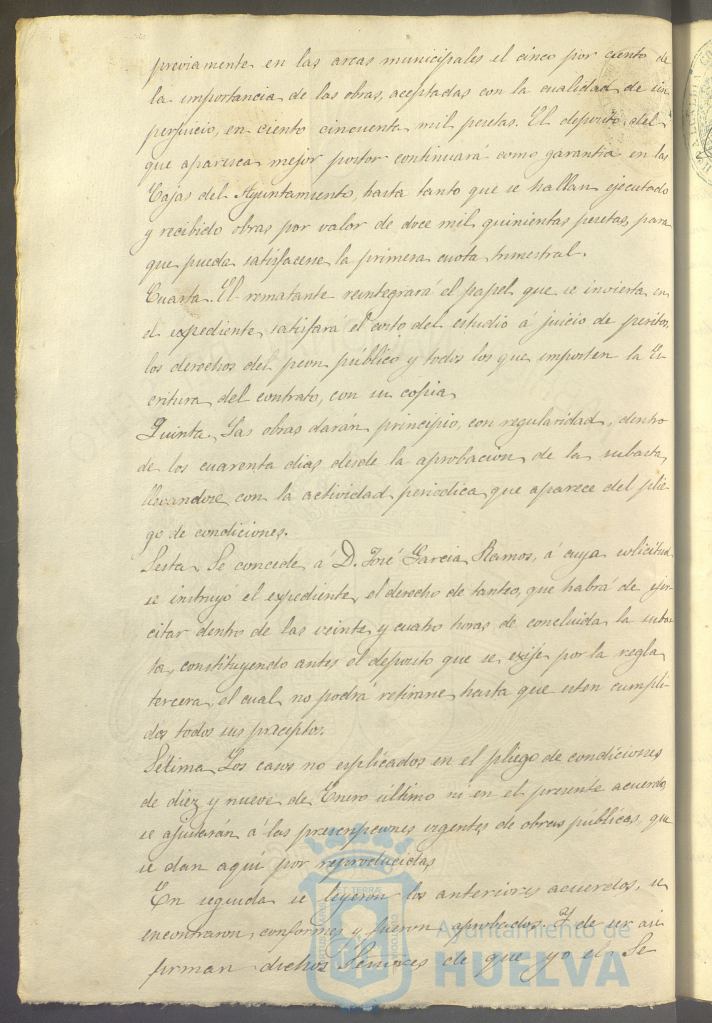 previamente en las arcas municipales el cinco por ciento de
la importancia de las obras, aceptadas con la cualidad de sin
perjuicio, en ciento cincuenta mil pesetas. El deposito del
que aparesca mejor postor continuará como garantia en las
Cajas del Ayuntamiento, hasta tanto que se hallan ejecutado
y recibido obras por valor de doce mil quinientas pesetas, para
que pueda satisfacerse la primera cuota trimestral.
Cuarta. El rematante reintegrará el papel que se invierta en
el expediente, satisfará el costo del estudio á juicio de peritos,
los derechos del peon público y todos los que importen la Es-
critura del contrato, con su copia.
Quinta. Las obras darán principio, con regularidad, dentro
de los cuarenta dias desde la aprobación de la subasta,
llevandose con la actividad periodica que aparece del plie-
go de condiciones.
Sesta. Se concede á D. José Garcia Ramos, á cuya solicitud
se instruyó el expediente, el derecho de tanteo, que habrá de ejer-
citar dentro de las veinte y cuatro horas de concluida la subas-
ta, constituyendo antes el deposito que se exije por la regla
tercera, el cual no podrá retirarse hasta que esten cumpli-
dos todos sus preceptos.
Sétima. Los casos no esplicados en el pliego de condiciones
de diez y nueve de Enero último ni en el presente acuerdo,
se ajustarán á las prescripciones vigentes de obras publicas, que
se dan aquí por reproducidas.
En seguida se leyeron los anteriores acuerdos, se
encontraron conformes y fueron aprobados. Y de ser asi
firman dichos Señores de que yo el Se
Ayuntamiento de
HUELVA